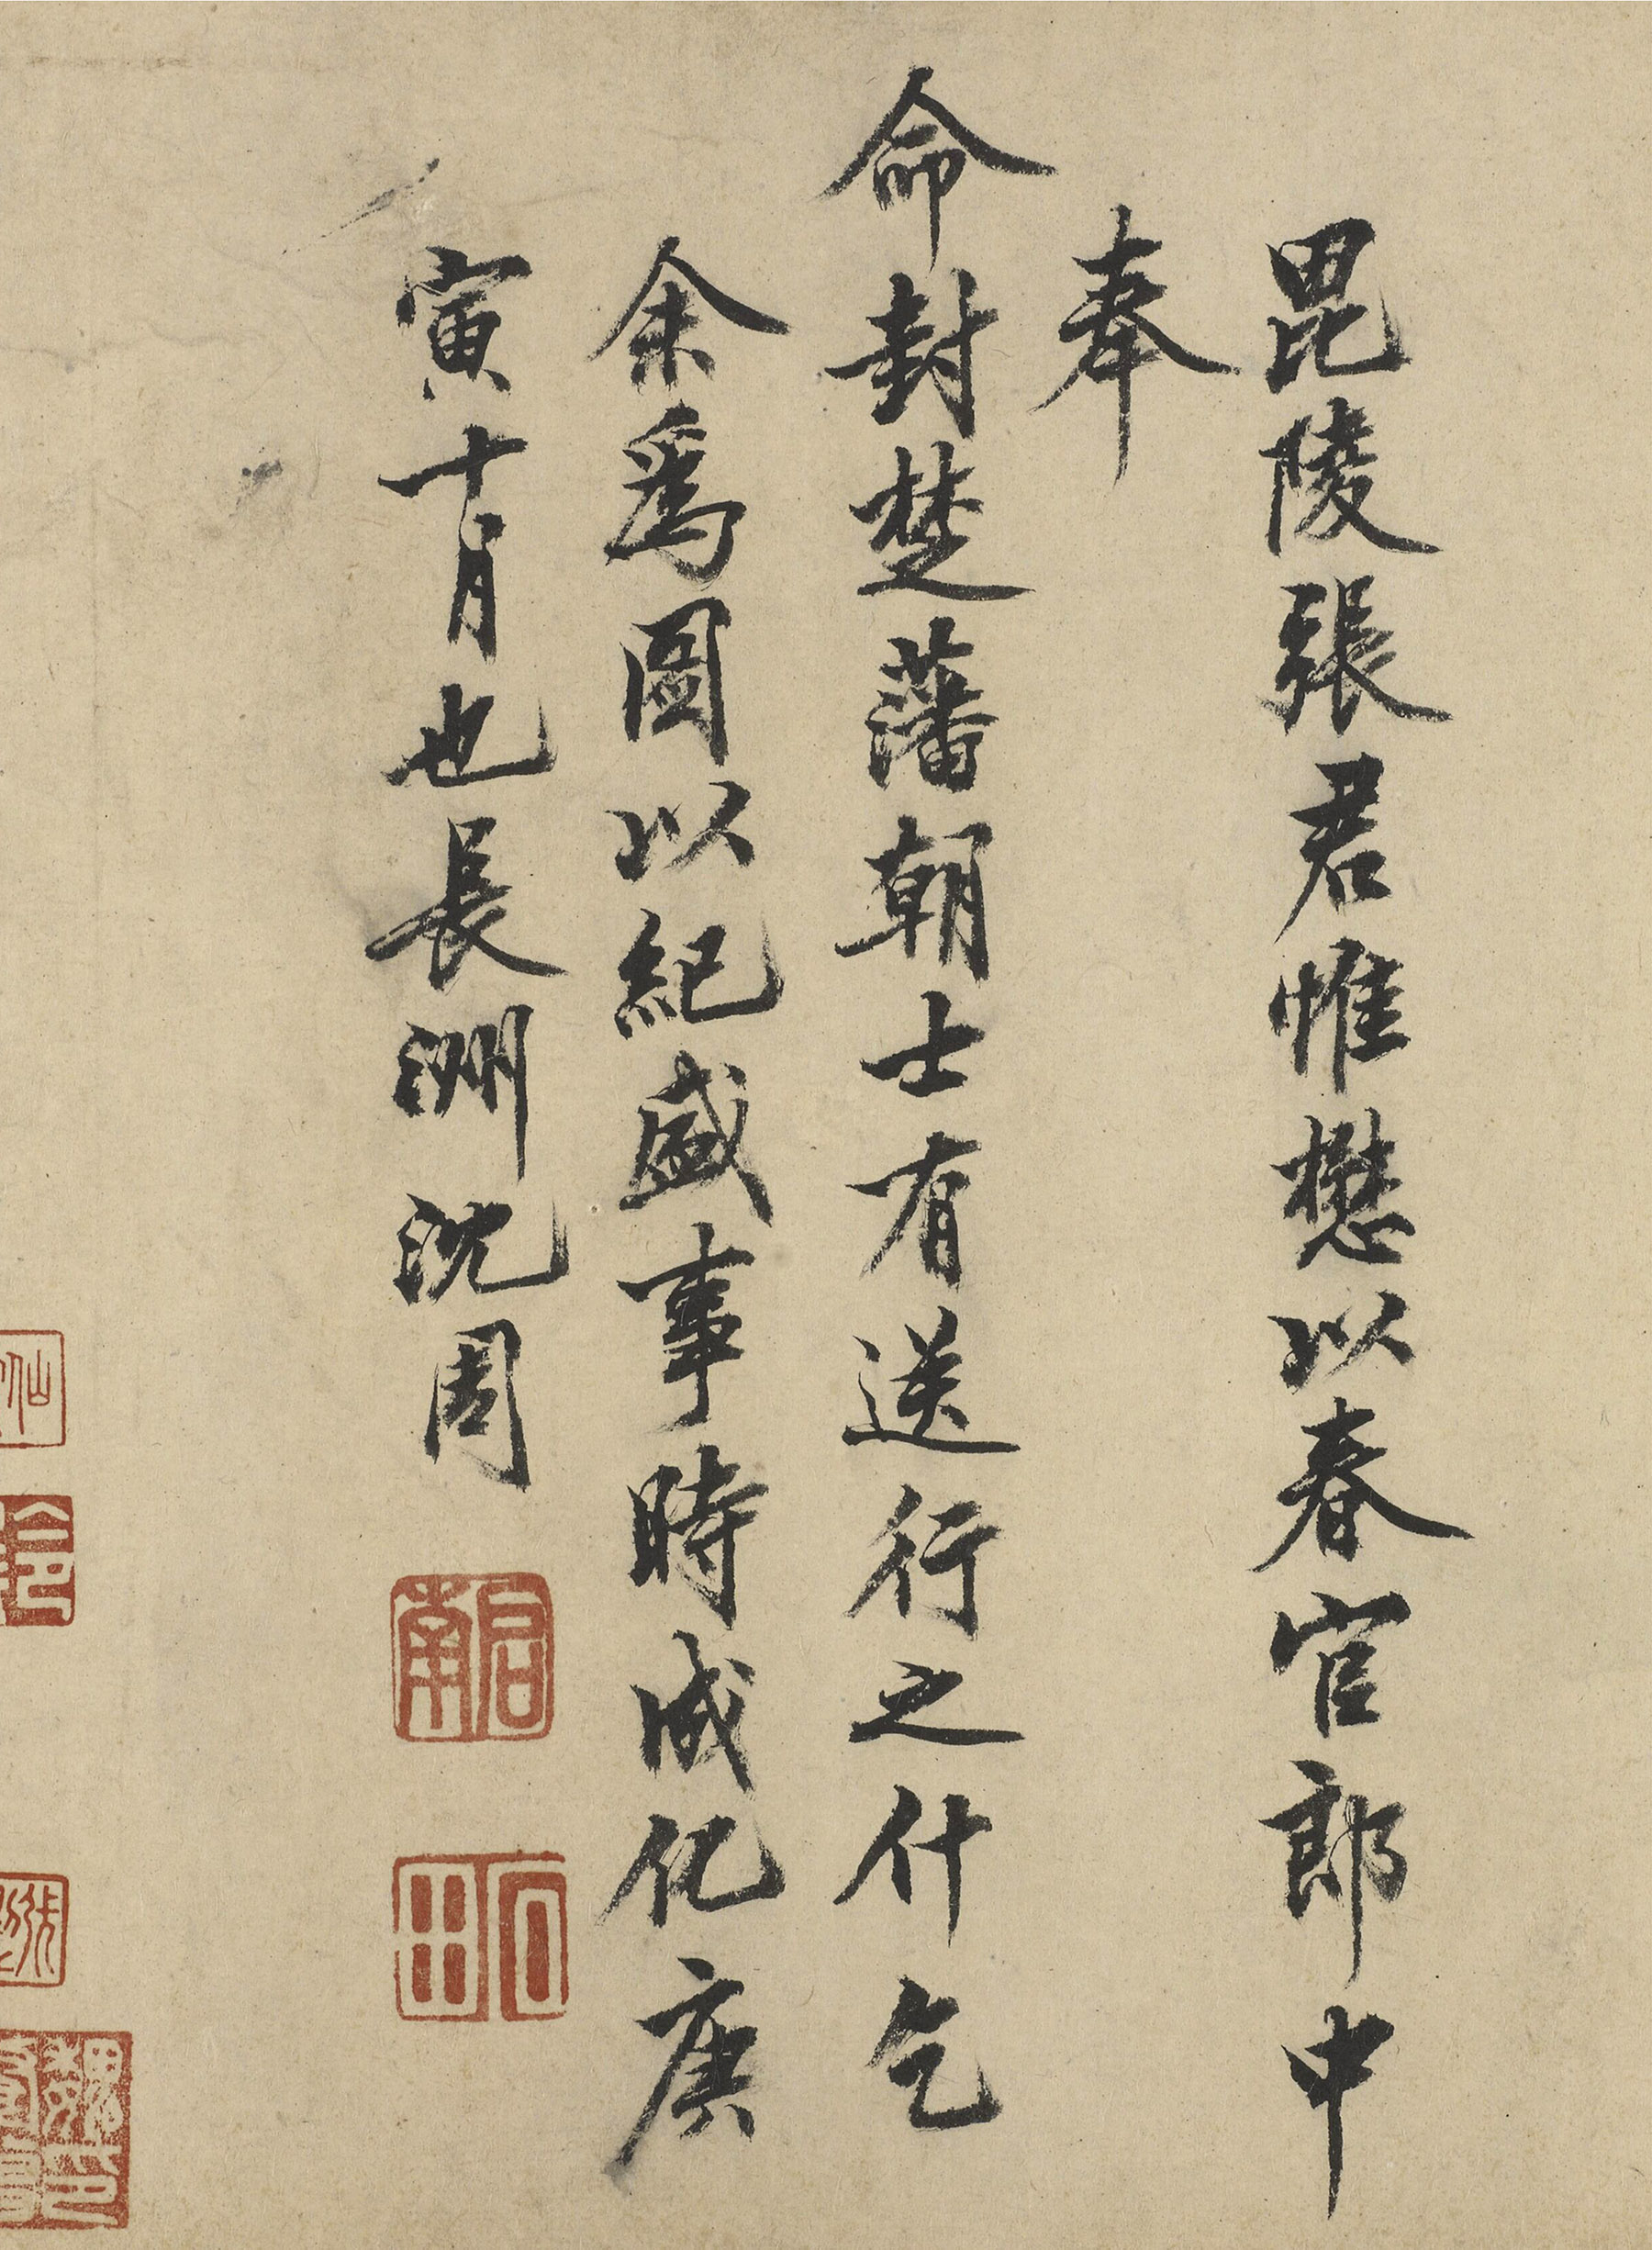 毘陵張君惟懋以春官郎中
奉
命封楚藩朝士有送行之什乞
余爲圖以紀盛事時成化庚
寅十月也長洲沈周
啟南
石田